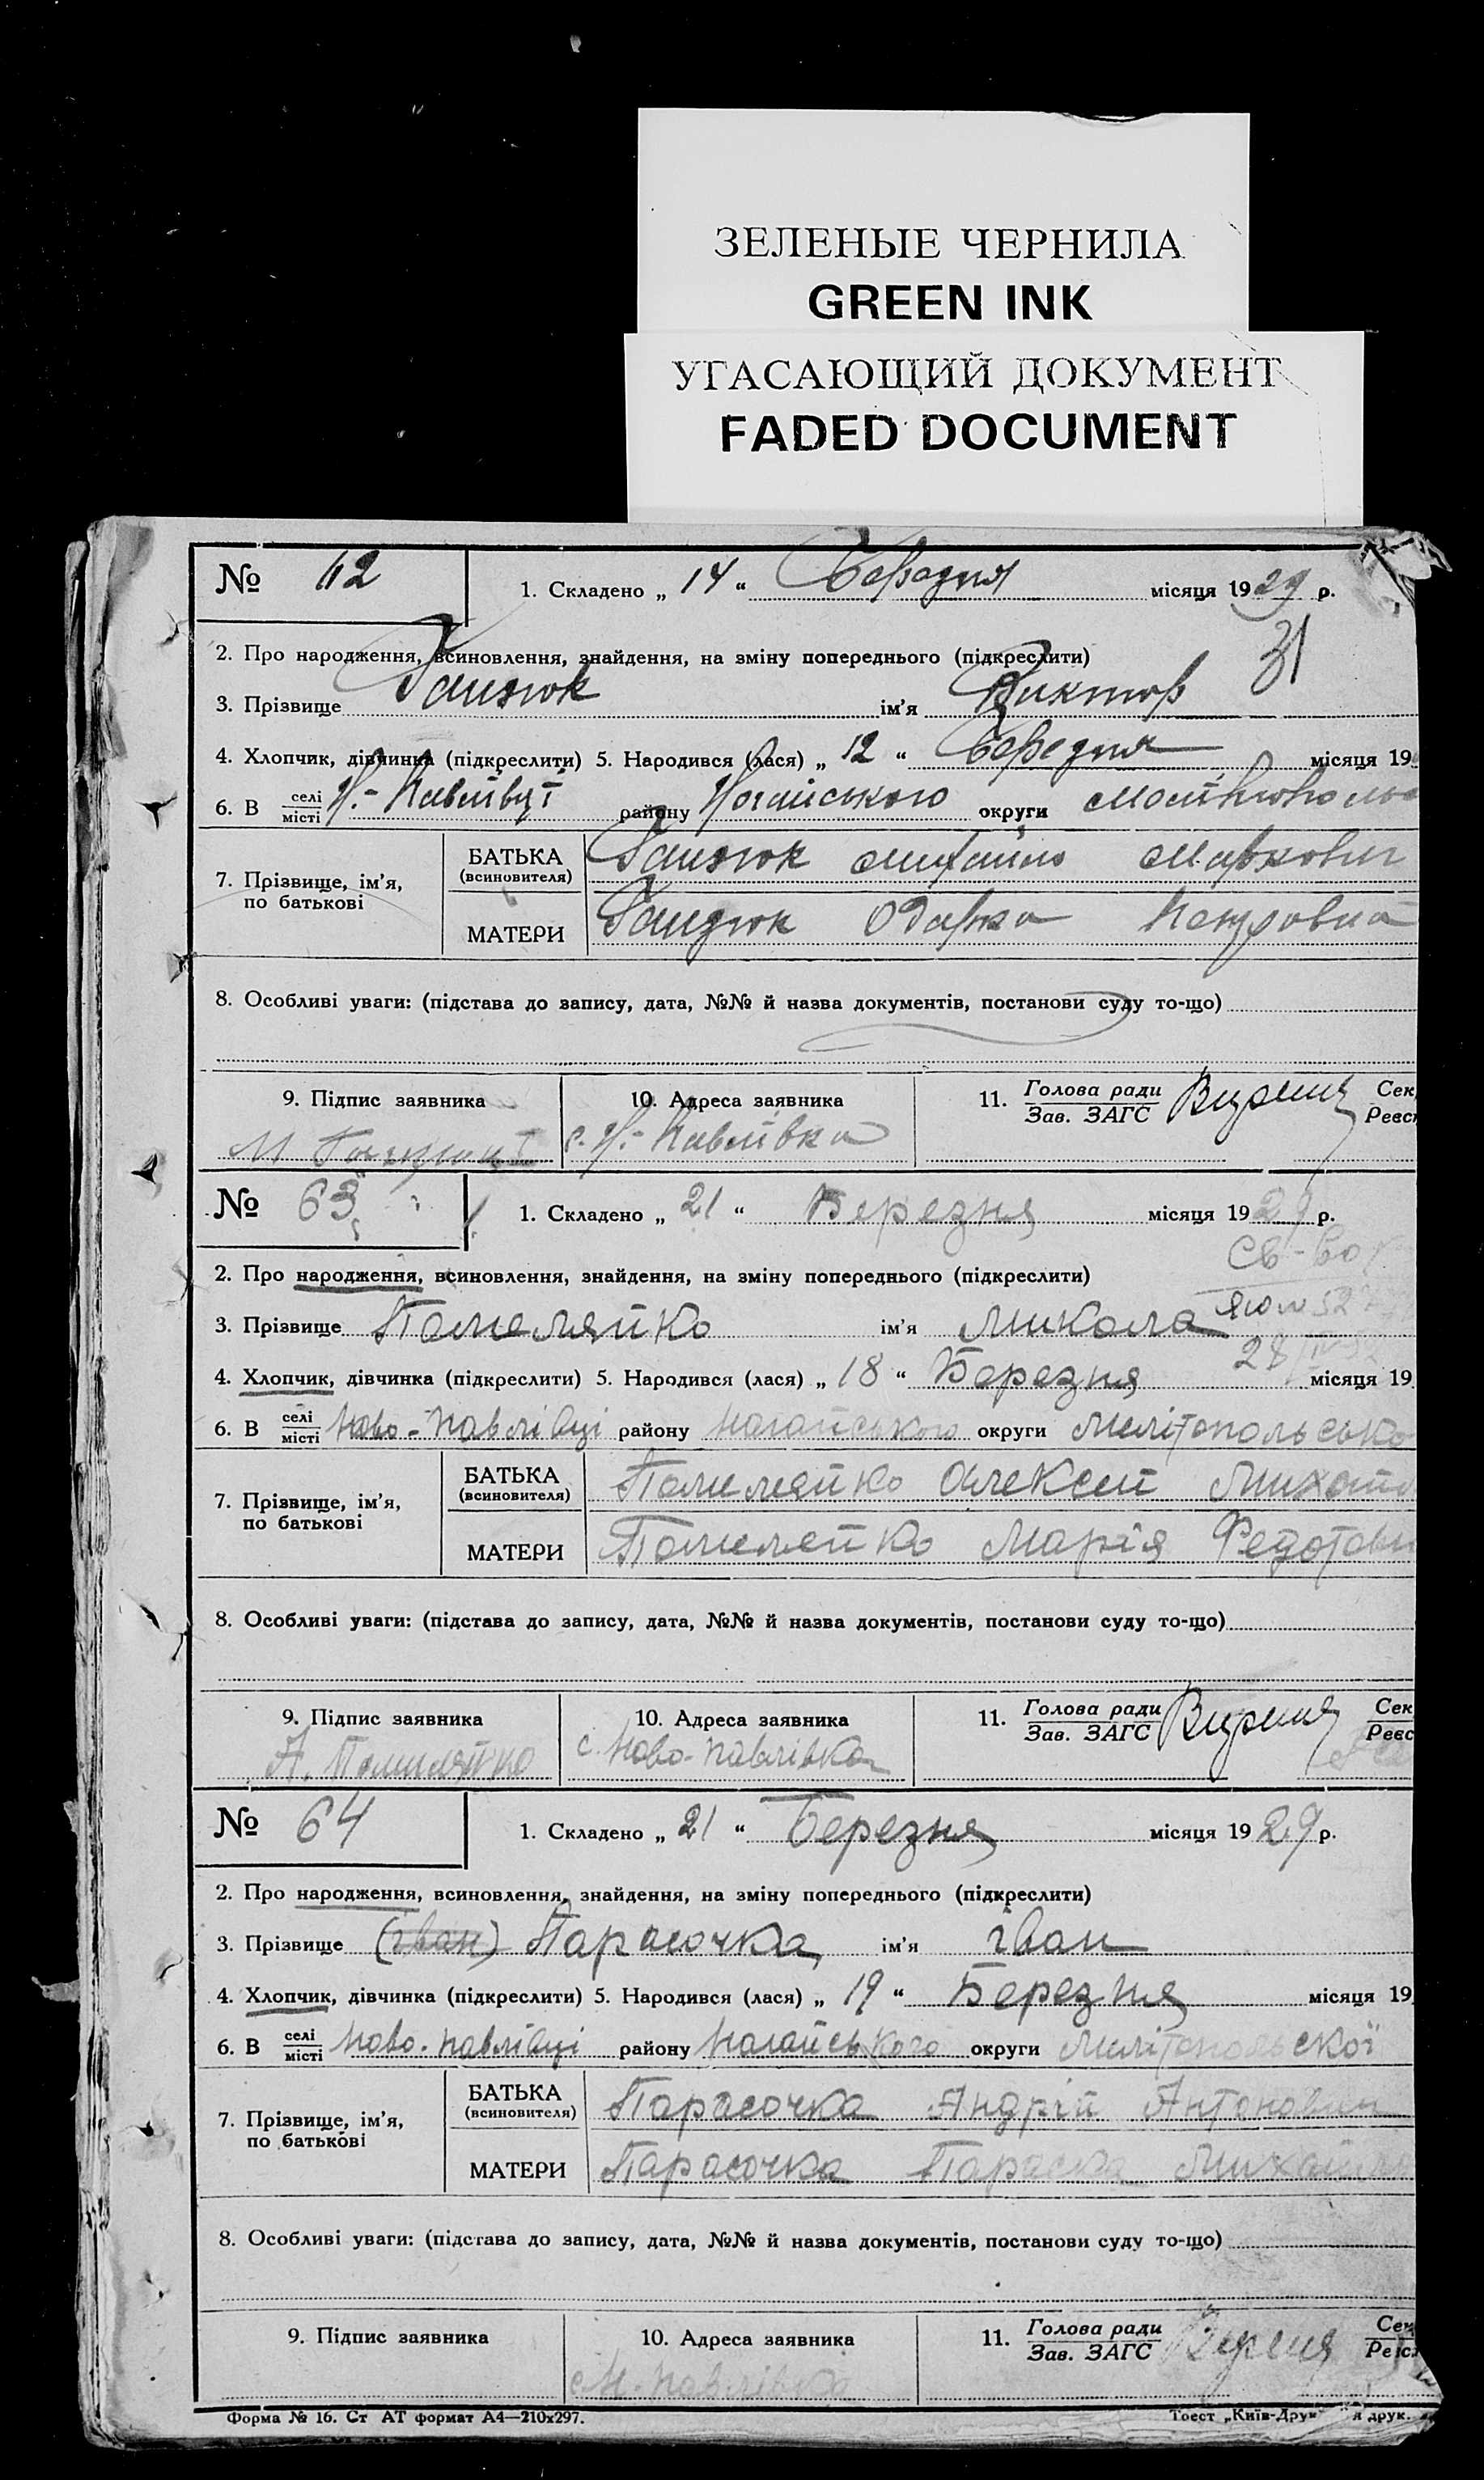 ЗЕЛЕНЫЕ ЧЕРНИЛА
GREEN INK
УГАСАЮЩИЙ ДОКУМЕНТ
FADED DOCUMENT
№ 62 1. Складено „ 14 “ Березня місяця 1929 р.
31
2. Про народження, всиновлення, знайдення, на зміну попереднього (підкреслити)
3. Прізвище Гандзюк ім'я Виктор
4. Хлопчик, дівчинка (підкреслити) 5. Народився (лася) „ 12 “ Березня місяця 19
6. В селі місті Н.-Павлівці району Ногайського округи
7. Прізвище, ім'я, по батькові
БАТЬКА (всиновителя) Михайло Маркович
МАТЕРИ Гандзюк Одарка Петровна
8. Особливі уваги: (підстава до запису, дата, №№ й назва документів, постанови суду то-що)
9. Підпис заявника 10. Адреса заявника 11. Голова ради Зав. ЗАГС Сек Реєс
М с. Н.-Павлівка
№ 63 1. Складено „ 21 “ Березня місяця 1929 р.
2. Про народження, всиновлення, знайдення, на зміну попереднього (підкреслити)
3. Прізвище Помеляйко ім'я Микола
4. Хлопчик, дівчинка (підкреслити) 5. Народився (лася) „ 18 “ Березня місяця 19
6. В селі місті Ново-Павлівці району Ногайського округи Мелітопольсько
7. Прізвище, ім'я, по батькові
БАТЬКА (всиновителя) Помеляйко Олексей Михайл
МАТЕРИ Помеляйко Марія Федотовн
8. Особливі уваги: (підстава до запису, дата, №№ й назва документів, постанови суду то-що)
9. Підпис заявника 10. Адреса заявника 11. Голова ради Зав. ЗАГС Сек Реєс
А. Помиляйко с. Ново-Павлівка
№ 64 1. Складено „ 21 “ Березня місяця 1929 р.
2. Про народження, всиновлення, знайдення, на зміну попереднього (підкреслити)
3. Прізвище (іван) Парасочка ім'я іван
4. Хлопчик, дівчинка (підкреслити) 5. Народився (лася) „ 19 “ Березня місяця 19
6. В селі місті Ново-Павлівці району Ногайського округи Мелітопольської
7. Прізвище, ім'я, по батькові
БАТЬКА (всиновителя) Парасочка Андрій Антонович
МАТЕРИ Парасочка Параска Михайл
8. Особливі уваги: (підстава до запису, дата, №№ й назва документів, постанови суду то-що)
9. Підпис заявника 10. Адреса заявника 11. Голова ради Зав. ЗАГС Сек Реєс
с. Н.-Павлівка
Форма № 16. Ст АТ формат А4—210х297. Тоест „Київ-Друк“ я друк.